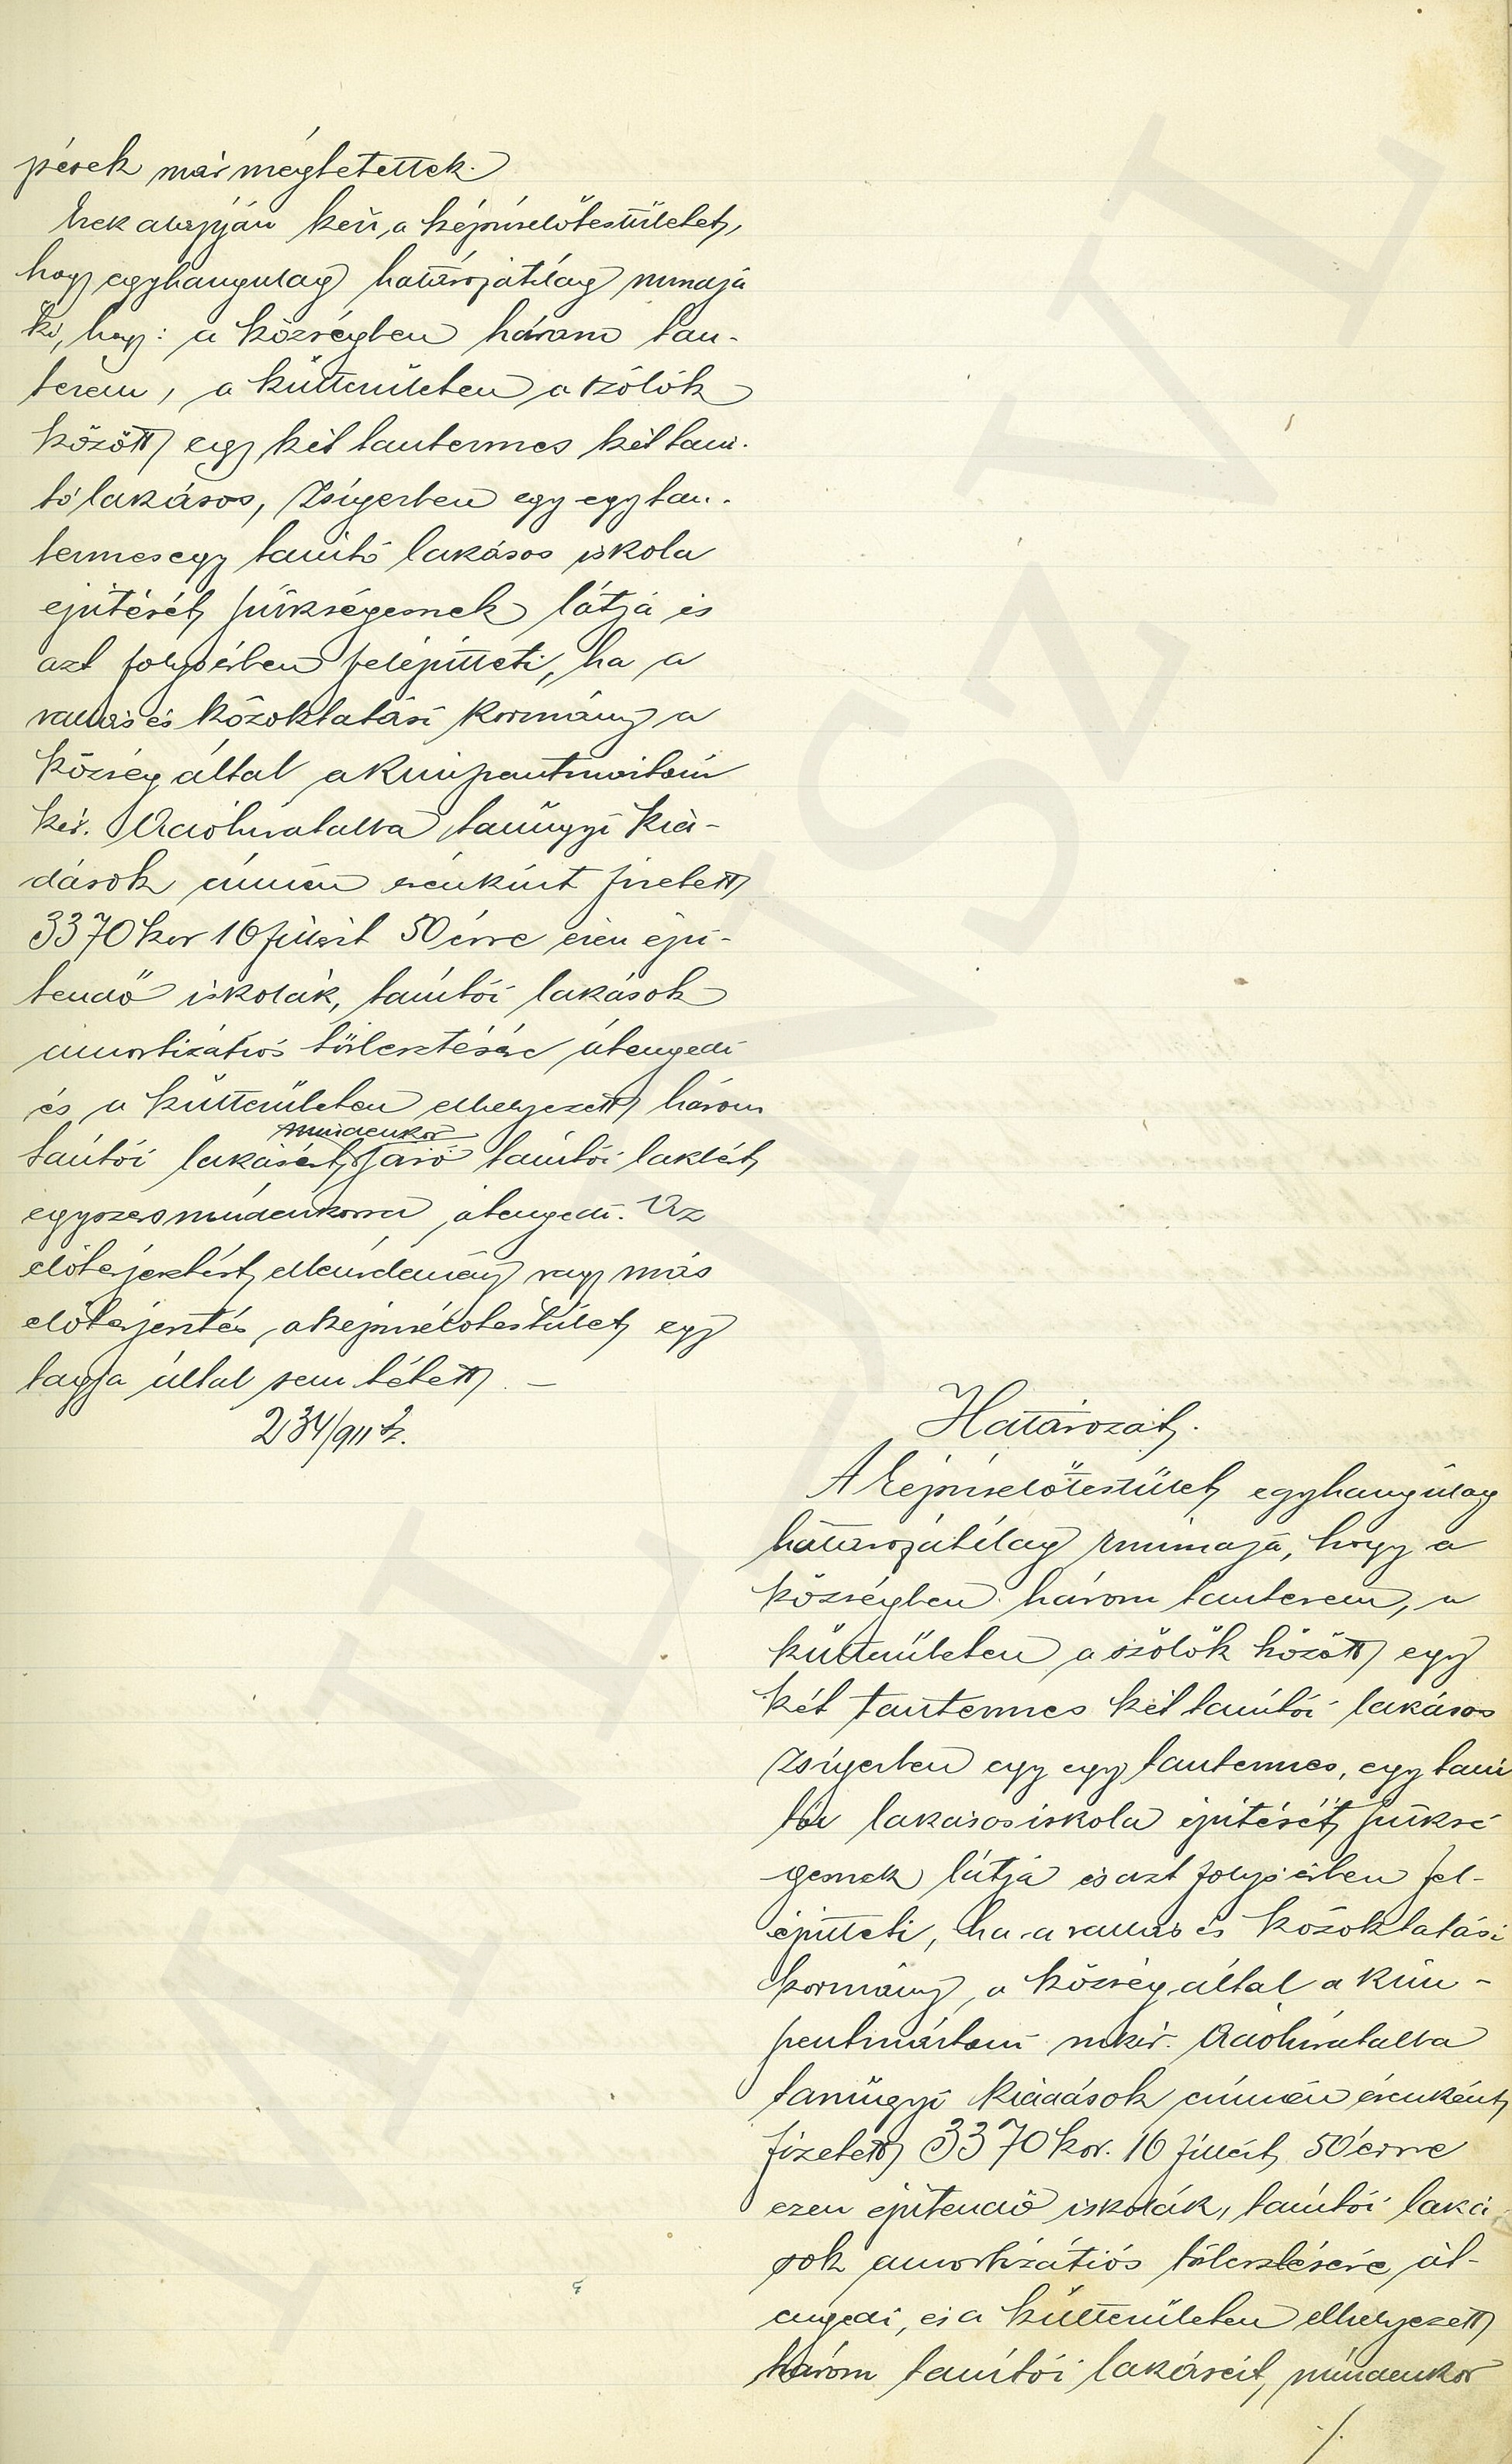 pések már megtetettek.
Ezek alapján kéri, a képviselőtestületet,
hogy egyhangulag határozatilag mondja
ki, hogy: a községben három tan-
terem, a külterületen a szőlők
között egy két tantermes két tani-
tó lakásos, Zsigerben egy egy tan-
termes egy tanitó lakásos iskola
épitését szükségesnek látja és
azt folyó évben felépitteti, ha a
vallás és közoktatási kormány a
község által a kunszentmártoni
kir. Adóhivatalba tanügyi kia-
dások címén évenkint fizetett
3370 kor 16 fillért 50 évre ezen épi-
tendő iskolák, tanítói lakások
amortizátiós törlesztésére átengedi
és a külterületen elhelyezett három
mindenkor
tanítói lakásért járó tanítói laklét
egyszersmindenkorra átengedi. Az
előterjesztést, ellenvélemény vagy más
előterjesztés, a képviselőtestület egy
tagja által sem tétett. —
234/911 k.
Határozat.
A képviselőtestület egyhangúlag
határozatilag kimondja, hogy a
községben három tanterem, a
külterületen a szőlők között egy
két tantermes két tanítói lakásos
Zsigerben egy egy tantermes, egy tani
tói lakásos iskola épitését szüksé
gesnek látja és azt folyó évben fel-
épitteti, ha a vallás és közoktatási
kormány, a község által a kun-
szentmártoni m kir. Adóhivatalba
tanügyi kiadások címén évenként
fizetett 3370 kor. 16 fillért 50 évre
ezen épitendő iskolák, tanítói laká
sok amortizátiós törlesztésére át-
engedi, és a külterületen elhelyezett
három tanítói lakásért, mindenkor
./.
MNL JNSZ VL